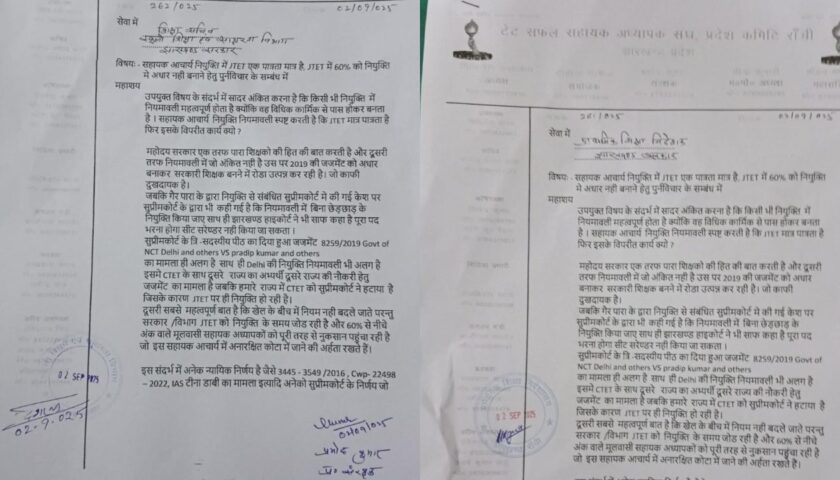 262/025
02/09/025
सेवा में
शिक्षा सचिव
स्कूली शिक्षा एवं साक्षरता विभाग
झारखण्ड सरकार
विषय:- सहायक आचार्य नियुक्ति में JTET एक पात्रता मात्र है, JTET में 60% को नियुक्ति
मे अधार नही बनाने हेतु पुर्नविचार के सम्बंध में
महाशय
उपयुक्त विषय के संदर्भ में सादर अंकित करना है कि किसी भी नियुक्ति में
नियमावली महत्वपूर्ण होता है क्योंकि वह विधिक कार्मिक से पास होकर बनता
है । सहायक आचार्य नियुक्ति नियमावली स्पष्ट करती है कि JTET मात्र पात्रता है
फिर इसके विपरीत कार्य क्यो ?
महोदय सरकार एक तरफ पारा शिक्षको की हित की बात करती है और दूसरी
तरफ नियमावली में जो अंकित नही है उस पर 2019 की जजमेंट को अधार
बनाकर सरकारी शिक्षक बनने में रोडा उत्पत्र कर रही है। जो काफी
दुखदायक है।
जबकि गैर पारा के द्वारा नियुक्ति से संबंधित सुप्रीमकोर्ट मे की गई केश पर
सुप्रीमकोर्ट के द्वारा भी कही गई है कि नियमावली में बिना छेड़छाड़ के
नियुक्ति किया जाए साथ ही झारखण्ड हाइकोर्ट ने भी साफ कहा है पूरा पद
भरना होगा सीट सरेण्डर नही किया जा सकता ।
सुप्रीमकोर्ट के त्रि -सदस्यीय पीठ का दिया हुआ जजमेंट 8259/2019 Govt of
NCT Delhi and others VS pradip kumar and others
का मामला ही अलग है साथ ही Delhi की नियुक्ति नियमावली भी अलग है
इसमें CTET के साथ दुसरे राज्य का अभ्यर्थी दुसरे राज्य की नौकरी हेतु
जजमेंट का मामला है जबकि हमारे राज्य में CTET को सुप्रीमकोर्ट ने हटाया है
जिसके कारण JTET पर ही नियुक्ति हो रही है।
दूसरी सबसे महत्वपूर्ण बात है कि खेल के बीच में नियम नही बदले जाते परन्तु
सरकार /विभाग JTET को नियुक्ति के समय जोड रही है और 60% से नीचे
अंक वाले मूलवासी सहायक अध्यापकों को पूरी तरह से नुकसान पहुचा रही है
जो इस सहायक आचार्य में अनारक्षित कोटा में जाने की अर्हता रखते हैं।
इस संदर्भ में अनेक न्यायिक निर्णय है जैसे 3445 - 3549 /2016 , Cwp- 22498
– 2022, IAS टीना डाबी का मामला इत्यादि अनेको सुप्रीमकोर्ट के निर्णय जो
02 SEP 2025
02.9.025
02/09/025
प्रमोद कुमार
टेट सफल सहायक अध्यापक संघ, प्रदेश कमिटि राँची
झारखण्ड प्रदेश
261/025
02/09/025
सेवा में
प्राथमिक शिक्षा निदेशक
झारखण्ड सरकार
विषय:- सहायक आचार्य नियुक्ति में JTET एक पात्रता मात्र है, JTET में 60% को नियुक्ति
मे अधार नही बनाने हेतु पुर्नविचार के सम्बंध में
महाशय
उपयुक्त विषय के संदर्भ में सादर अंकित करना है कि किसी भी नियुक्ति में
नियमावली महत्वपूर्ण होता है क्योंकि वह विधिक कार्मिक से पास होकर बनता
है । सहायक आचार्य नियुक्ति नियमावली स्पष्ट करती है कि JTET मात्र पात्रता है
फिर इसके विपरीत कार्य क्यो ?
महोदय सरकार एक तरफ पारा शिक्षको की हित की बात करती है और दूसरी
तरफ नियमावली में जो अंकित नही है उस पर 2019 की जजमेंट को अधार
बनाकर सरकारी शिक्षक बनने में रोडा उत्पत्र कर रही है। जो काफी
दुखदायक है।
जबकि गैर पारा के द्वारा नियुक्ति से संबंधित सुप्रीमकोर्ट मे की गई केश पर
सुप्रीमकोर्ट के द्वारा भी कही गई है कि नियमावली में बिना छेड़छाड़ के
नियुक्ति किया जाए साथ ही झारखण्ड हाइकोर्ट ने भी साफ कहा है पूरा पद
भरना होगा सीट सरेण्डर नही किया जा सकता ।
सुप्रीमकोर्ट के त्रि -सदस्यीय पीठ का दिया हुआ जजमेंट 8259/2019 Govt of
NCT Delhi and others VS pradip kumar and others
का मामला ही अलग है साथ ही Delhi की नियुक्ति नियमावली भी अलग है
इसमें CTET के साथ दुसरे राज्य का अभ्यर्थी दुसरे राज्य की नौकरी हेतु
जजमेंट का मामला है जबकि हमारे राज्य में CTET को सुप्रीमकोर्ट ने हटाया है
जिसके कारण JTET पर ही नियुक्ति हो रही है।
दूसरी सबसे महत्वपूर्ण बात है कि खेल के बीच में नियम नही बदले जाते परन्तु
सरकार /विभाग JTET को नियुक्ति के समय जोड रही है और 60% से नीचे
अंक वाले मूलवासी सहायक अध्यापकों को पूरी तरह से नुकसान पहुचा रही है
जो इस सहायक आचार्य में अनारक्षित कोटा में जाने की अर्हता रखते हैं।
02 SEP 2025